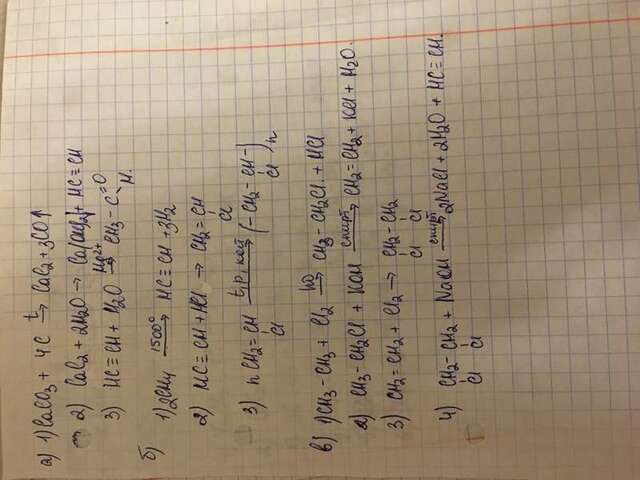 а) 1) CaCO3 + 4C →t CaC2 + 3CO↑
2) CaC2 + 2H2O → Ca(OH)2 + HC≡CH
3) HC≡CH + H2O →Hg2+ CH3-C=O
H.
б)
1) 2CH4 →1500° HC≡CH + 3H2
2) HC≡CH + HCl → CH2=CH
Cl
3) nCH2=CH →t,p,кат (-CH2-CH-)n
Cl Cl
в) 1) CH3-CH3 + Cl2 →hυ CH3-CH2Cl. + HCl
2) CH3-CH2Cl + KOH →спирт CH2=CH2 + KCl + H2O.
3) CH2=CH2 + Cl2 → CH2-CH2
Cl Cl
4) CH2-CH2 + NaOH →спирт 2NaCl + 2H2O + HC≡CH.
Cl Cl